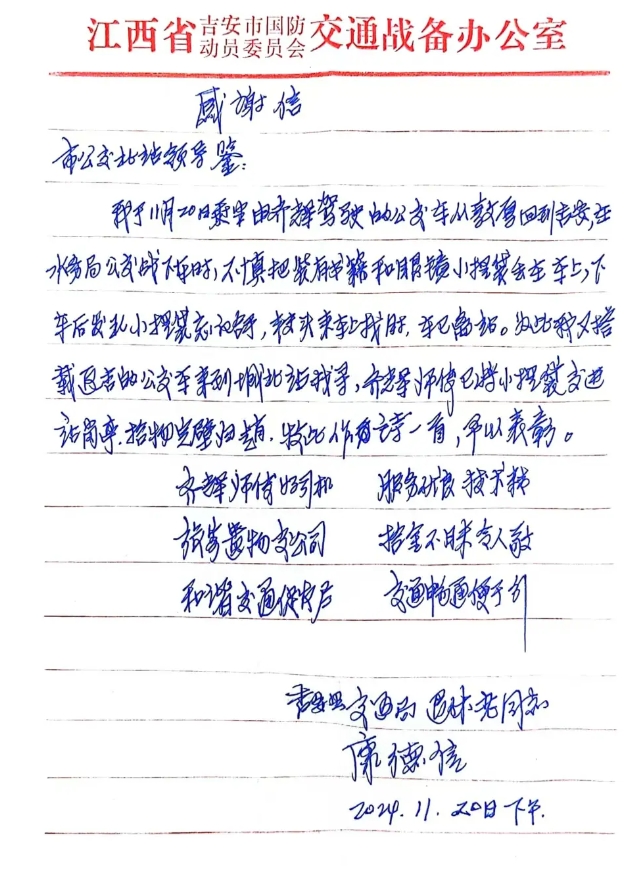 江西省吉安市国防动员委员会交通战备办公室
感谢信
市公交北站领导鉴:
我于11月20日乘坐由齐辉驾驶的公交车从敦厚回到吉安,在
水务局公交战下车时,不慎把装有书籍和眼镜小提袋忘在车上,下
车后发现小提袋忘,转头乘车上找时,车已离站。为此我又搭
载返吉的公交车来到城北站找寻,齐辉师傅已将小提袋交进
站岗亭.拾物完璧归赵.特此作诗一首,予以表彰。
齐辉师傅好司机 服务优良技术
旅客遗物交公司 拾金不昧令人敬
和谐交通保 交通畅通便于行
吉安县交通局退休老同志
康德信
2024.11.20日下午.